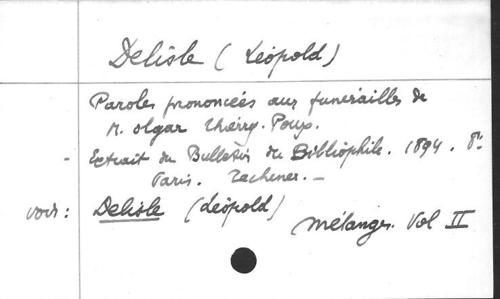 Delisle (Léopold)
Paroles prononcées aux funérailles de
M. Olgar Thierry-Poux.
- Extrait du Bulletin du Bibliophile. 1894. 8°
Paris. Techener. -
voir : Delisle (Léopold)
Mélanges. Vol II